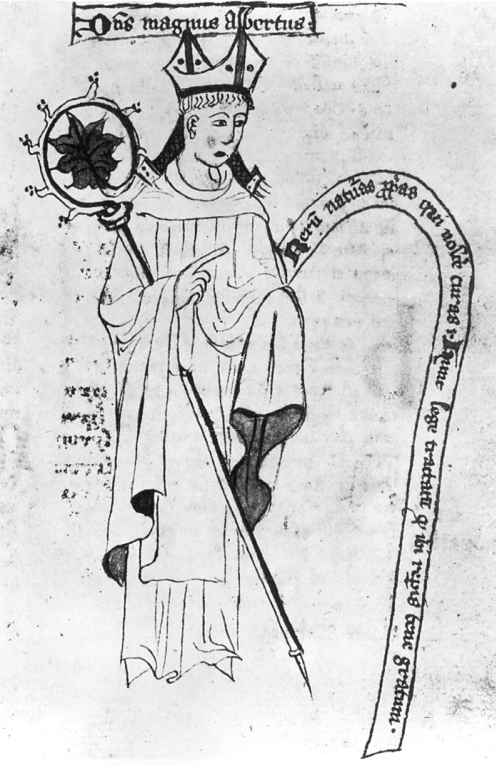 Dn̄s magnus Albertus:
Rerū natūas p̄p̄as qui nosc̄e curas · Hunc lege tractatū q̄ ibi rep̄is tene gratum ·